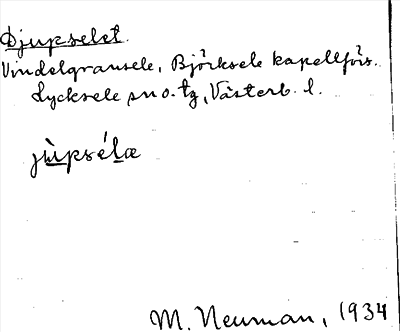 Djupselet.
Vindelgransele, Björksele kapellförs.
Lycksele sn o. tg, Västerb. l.
jùpsélæ
M. Neuman, 1934